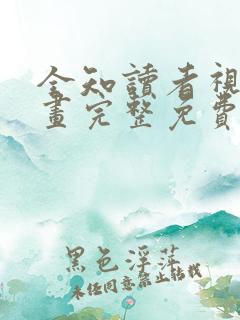 全知讀者視
畫完整免費
黑色浮萍
未经同意禁止转载